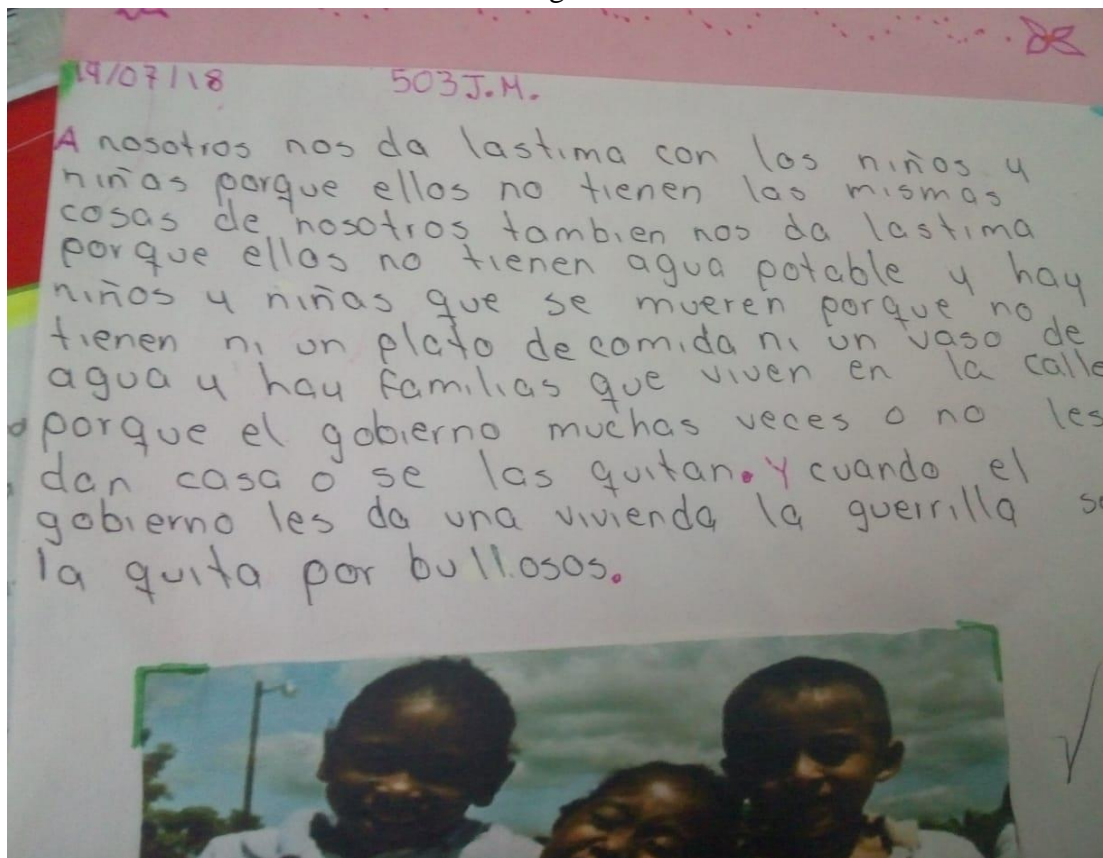 19/07/18 503 J.M.
A nosotros nos da lastima con los niños y
niñas porque ellos no tienen las mismas
cosas de nosotros tambien nos da lastima
porque ellos no tienen agua potable y hay
niños y niñas que se mueren porque no
tienen ni un plato de comida ni un vaso de
agua y hay familias que viven en la calle
porque el gobierno muchas veces o no les
dan casa o se las quitan. Y cuando el
gobierno les da una vivienda la guerrilla se
la quita por bullosos.